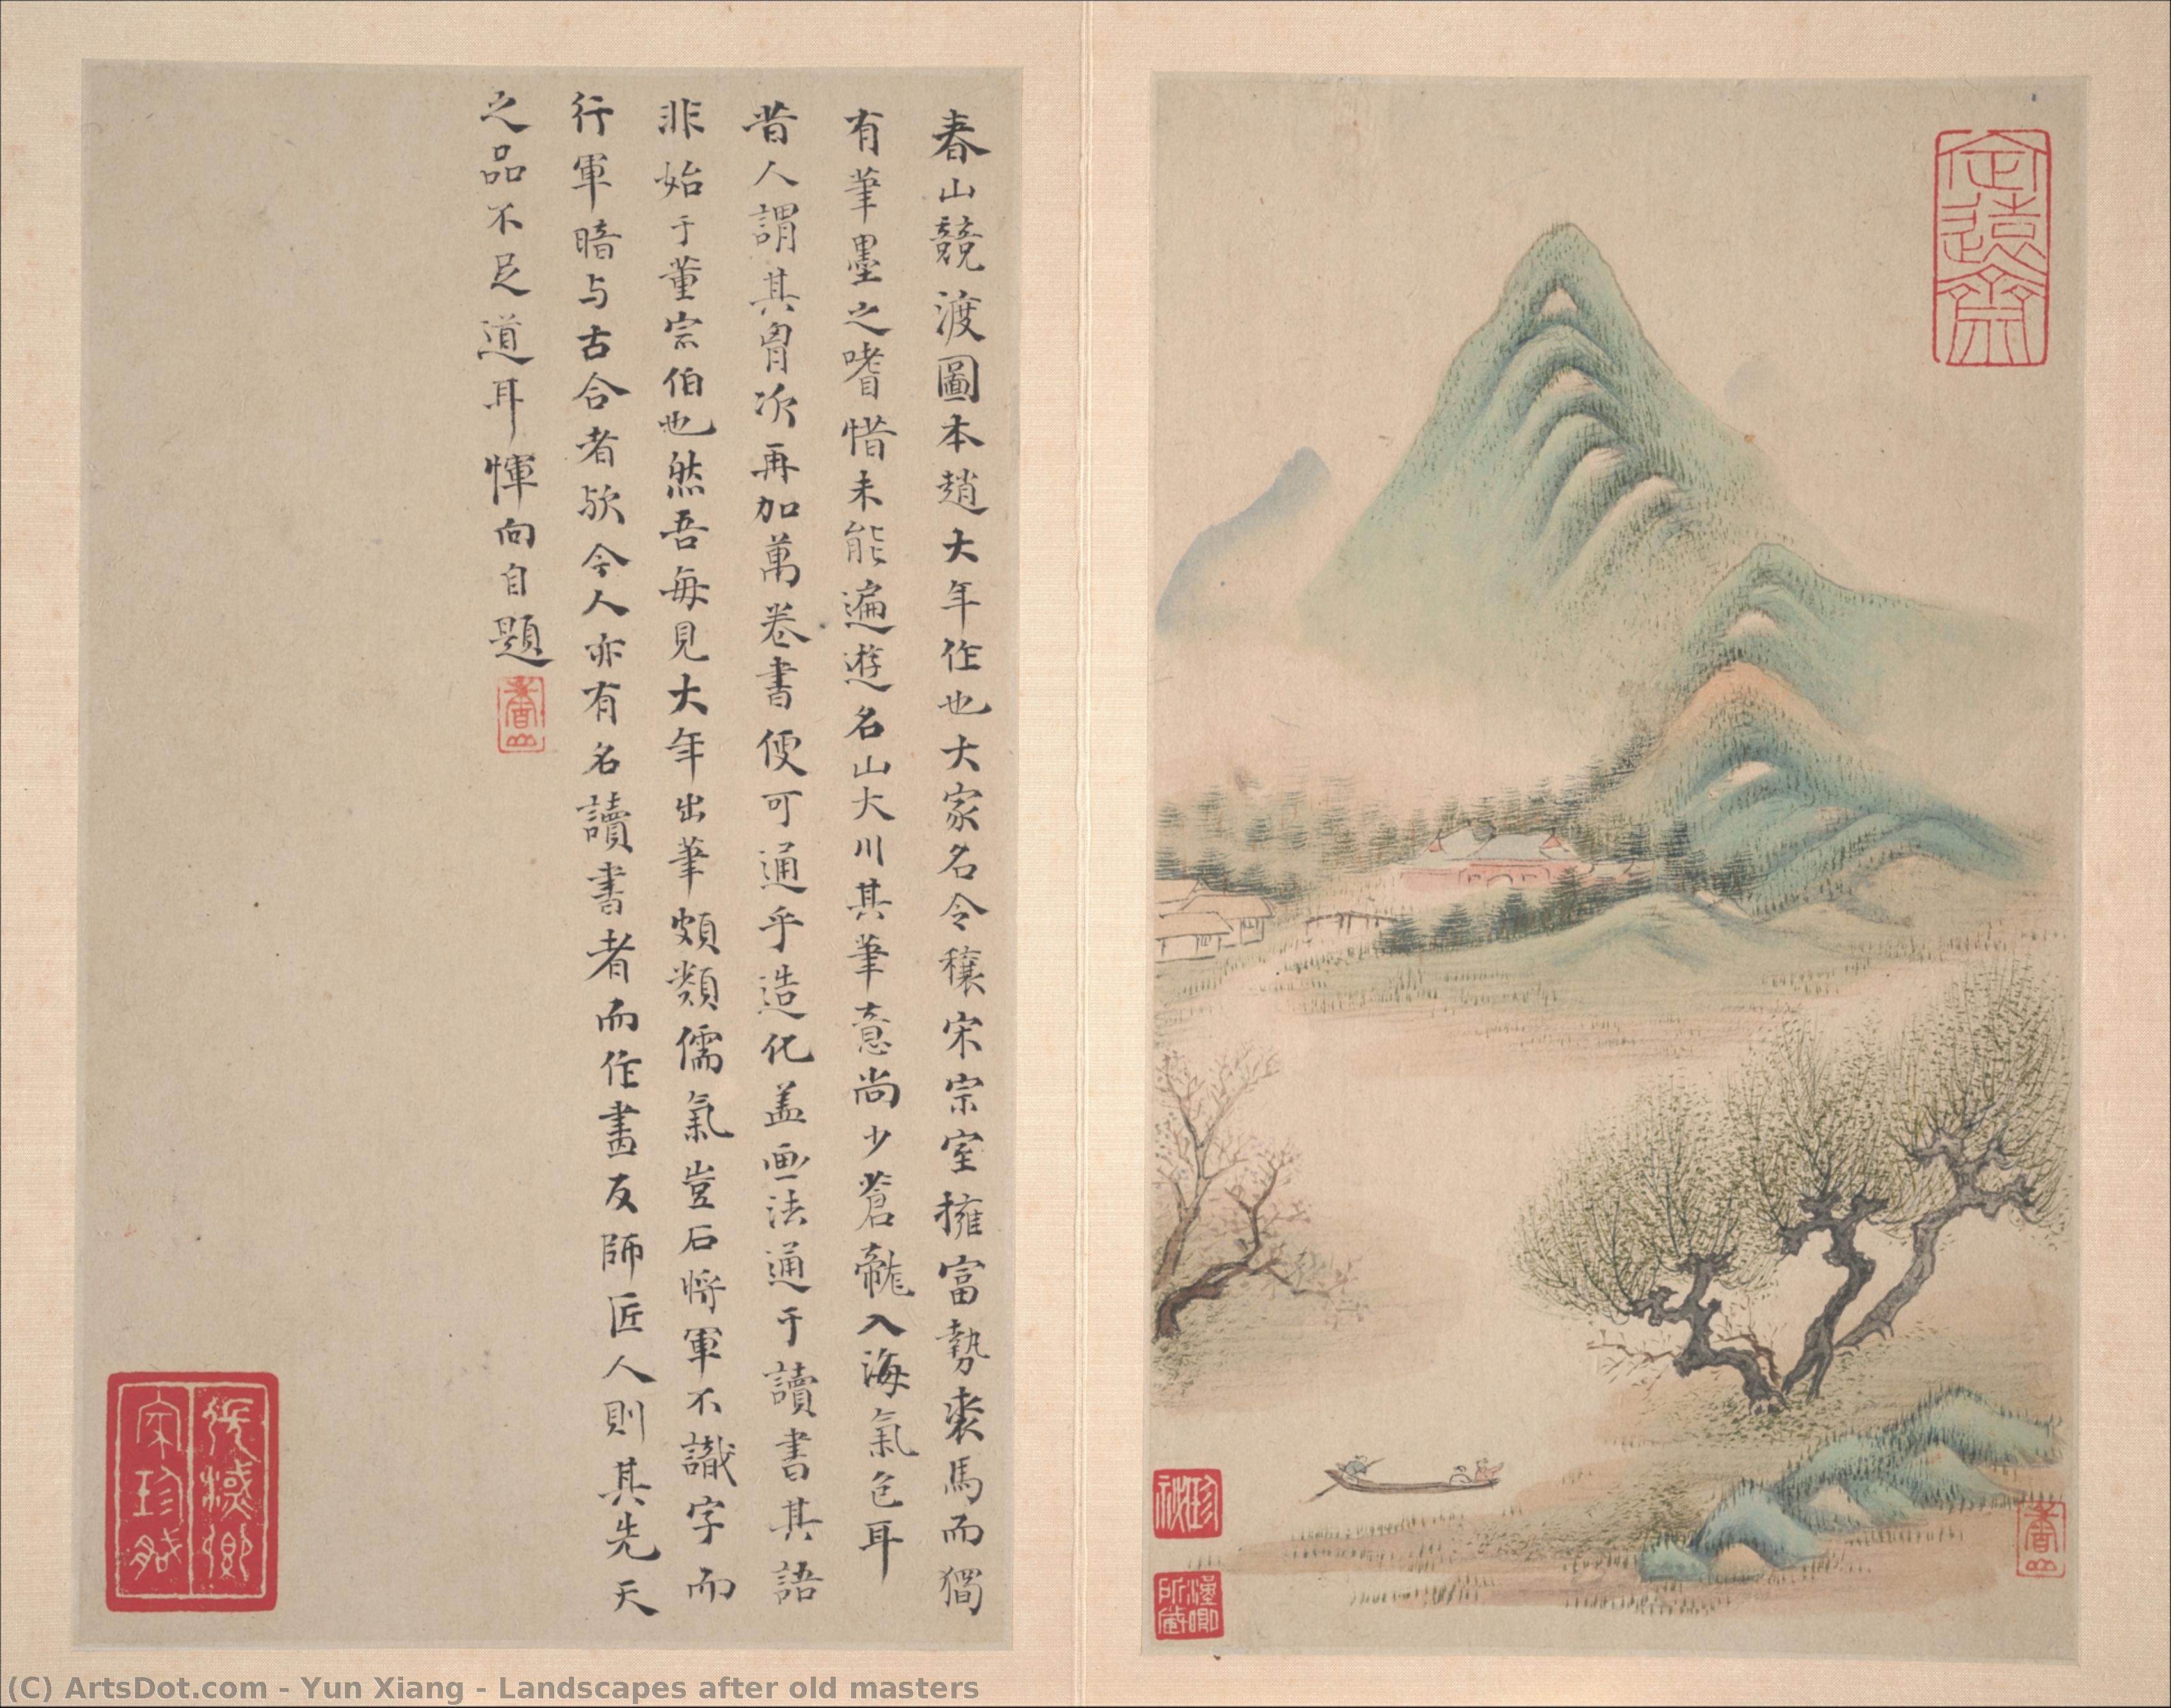 春山競渡圖本趙大年作也大家名令穰宋宗室擁富勢裘馬而獨
有筆墨之嗜惜未能遍遊名山大川其筆意尚少蒼龍入海氣色耳
昔人謂其胷次再加萬卷書便可通乎造化盖画法通于讀書其語
非始于董宗伯也然吾每見大年出筆頗類儒氣豈石將軍不識字而
行軍暗与古合者欤今人亦有名讀書者而作畫反師匠人則其先天
之品不足道耳惲向自題
香山
定遠齋
香山
珍秘
漢卿所藏
宋珍藏
(C) ArtsDot.com - Yun Xiang - Landscapes after old masters